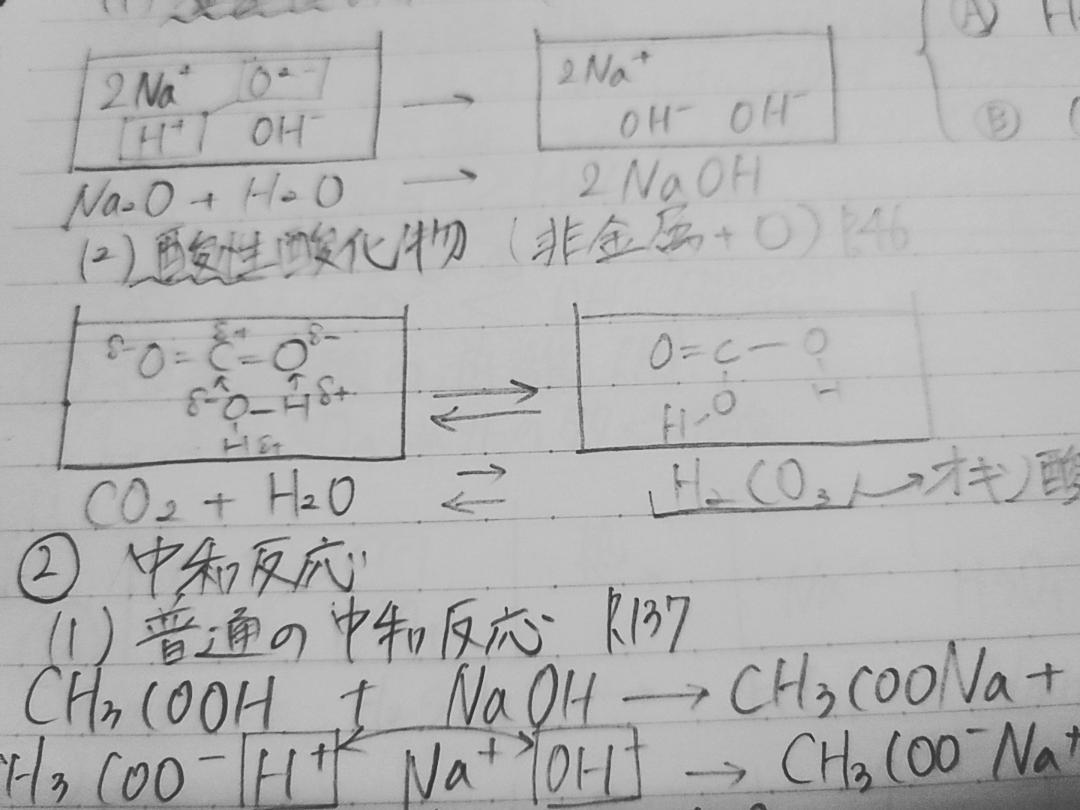 2Na⁺ O²⁻ → 2Na⁺
H⁺ OH⁻ OH⁻ OH⁻
Na₂O + H₂O → 2NaOH
(2) 酸性酸化物 (非金属+O) P.46
δ- O = C δ+ = O δ- O = C - O
δ- O - H δ+ H - O H
H δ+
CO₂ + H₂O ⇄ H₂CO₃ → オキソ酸
② 中和反応
(1) 普通の中和反応 P.137
CH₃COOH + NaOH → CH₃COONa +
H₃COO⁻ H⁺ Na⁺ OH⁺ → CH₃COO⁻Na⁺
(A) H
(B)